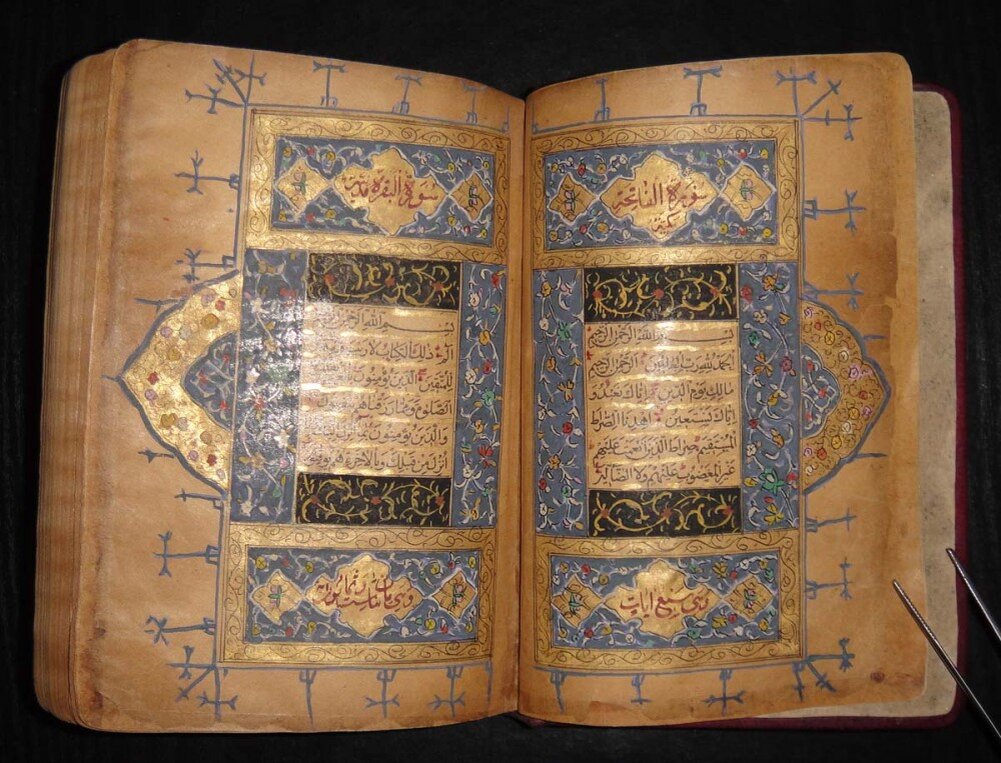 سورة الفاتحة
مكية
بسم الله الرحمن الرحيم
الحمد لله رب العالمين الرحمن الرحيم
مالك يوم الدين اياك نعبد و
اياك نستعين اهدنا الصراط
المستقيم صراط الذين انعمت عليهم
غير المغضوب عليهم ولا الضالين
وهي سبع ايات
سورة البقرة مدنية
بسم الله الرحمن الرحيم
الم ذلك الكتاب لا ريب
للمتقين الذين يؤمنون
الصلوة ومما رزقناهم
والذين يؤمنون بما انزل
انزل من قبلك وبالاخرة هم يوقنون